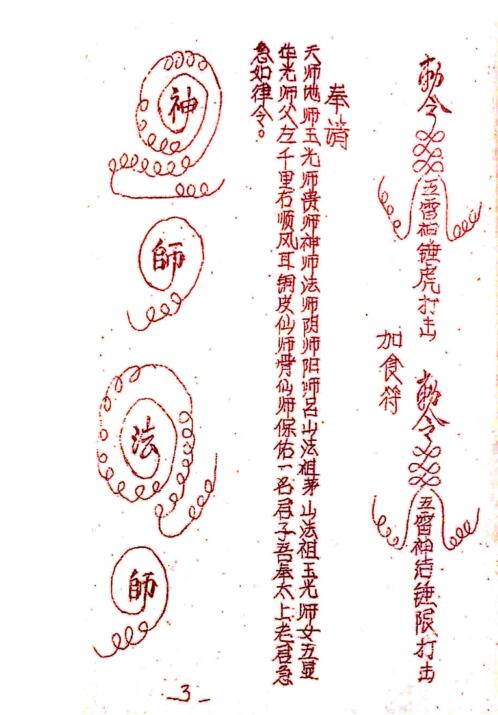 勅令五雷神锤虎打击
加食符
勅令五雷神结锤限打击
奉請
天师地师玉光师贵师神师法师阴师阳师吕山法祖茅山法祖玉光师女五显
华光师父左千里右顺风耳铜皮仙师骨仙师保佑一名君子吾奉太上老君急
急如律令。
神
師
法
師
3